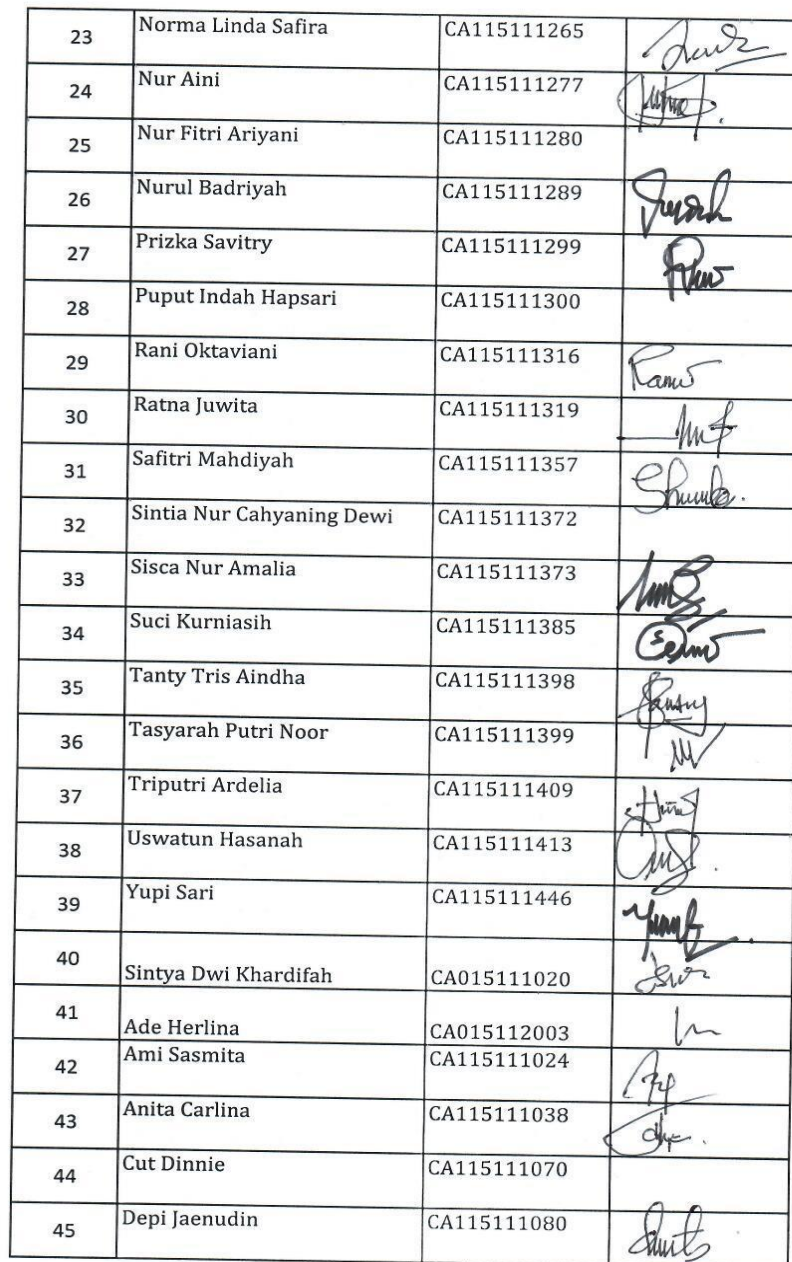 23 Norma Linda Safira CA115111265
24 Nur Aini CA115111277
25 Nur Fitri Ariyani CA115111280
26 Nurul Badriyah CA115111289
27 Prizka Savitry CA115111299
28 Puput Indah Hapsari CA115111300
29 Rani Oktaviani CA115111316
30 Ratna Juwita CA115111319
31 Safitri Mahdiyah CA115111357
32 Sintia Nur Cahyaning Dewi CA115111372
33 Sisca Nur Amalia CA115111373
34 Suci Kurniasih CA115111385
35 Tanty Tris Aindha CA115111398
36 Tasyarah Putri Noor CA115111399
37 Triputri Ardelia CA115111409
38 Uswatun Hasanah CA115111413
39 Yupi Sari CA115111446
40 Sintya Dwi Khardifah CA015111020
41 Ade Herlina CA015112003
42 Ami Sasmita CA115111024
43 Anita Carlina CA115111038
44 Cut Dinnie CA115111070
45 Depi Jaenudin CA115111080